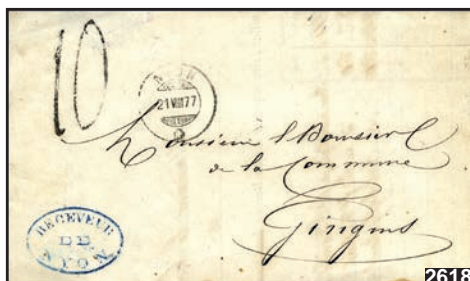 10
NYON
21 VIII 77
Monsieur le Boursier
de la Commune
Gingins
RECEVEUR
DE
NYON
2618